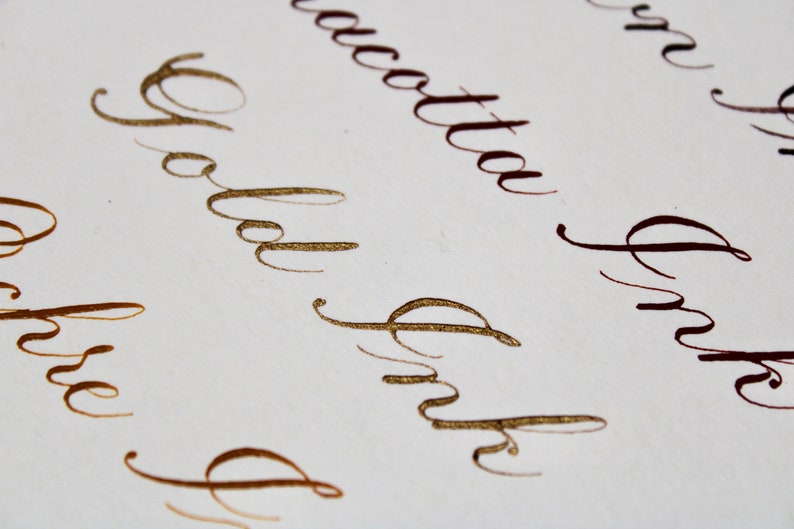 acotta Ink
Gold Ink
Ochre